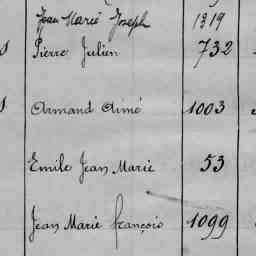 Jean Marie Joseph 1319
Pierre Julien 732
Armand Aimé 1003
Emile Jean Marie 53
Jean Marie françois 1099